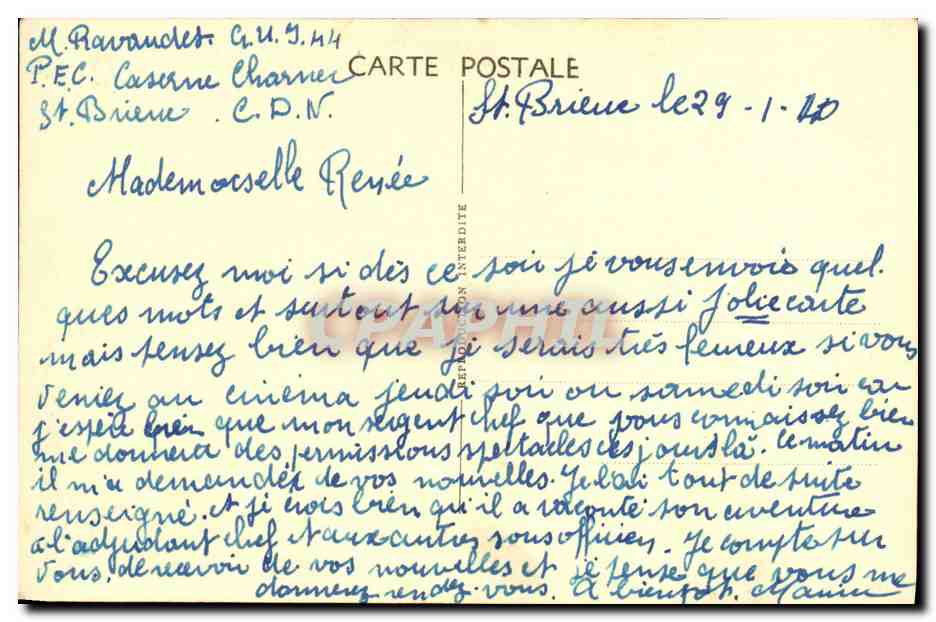 M. Ravaudet. G.U.J. 44
P.E.C. Caserne Charner
St. Brieuc . C.D.N.
CARTE POSTALE
St. Brieuc le 29 - 1 - 40
Mademoiselle Renée
REPRODUCTION INTERDITE
Excusez moi si dès ce soir je vous envois quel.
ques mots et surtout sur une aussi jolie carte
mais pensez bien que je serais très heureux si vous
veniez au cinéma jeudi soir ou samedi soir car
j'espère bien que mon sergent chef que vous connaissez bien
me donnera des permissions spectacles ces jours là. Ce matin
il m'a demandé de vos nouvelles. Je l'ai tout de suite
renseigné. et je crois bien qu'il a raconté son aventure
à l'adjudant chef et aux autres sous officiers. Je compte sur
vous, de recevoir de vos nouvelles et je pense que vous me
donnerez rendez-vous. A bientôt.
CPAPHIL